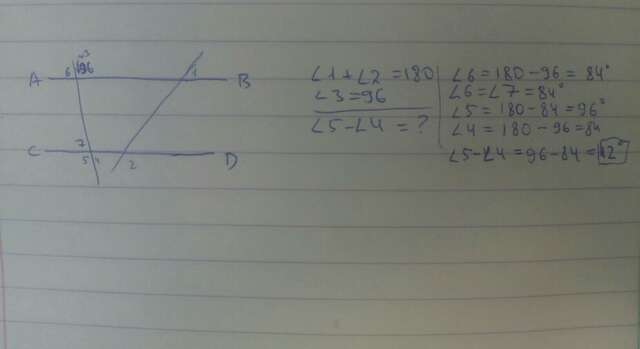 3
6 96
A 1 B
7
C 5 4 2 D
∠1+∠2=180
∠3=96
∠5-∠4=?
∠6=180-96=84°
∠6=∠7=84°
∠5=180-84=96°
∠4=180-96=84
∠5-∠4=96-84=12°